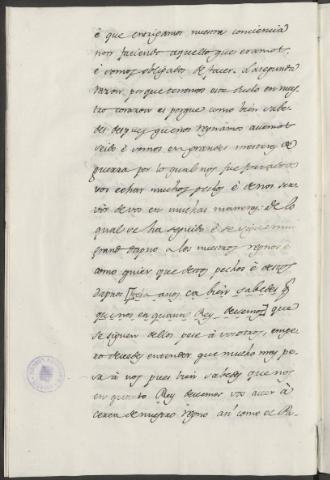 é que encrigamos nuestra conciencia
non faciendo aquello que eramos,
é somos obligados de facer. La segunda
razon, porque tenemos este duelo en nues-
tro corazon es porque como bien sabe-
des despues que nos regnámos avemos
seido é somos en grandes menesteres de
guerra por lo qual nos fue
vos echar muchos pechos é de nos ser-
vir de vos en muchas maneras: de lo
qual se ha seguido é se sigue muy
grand dapno a los nuestros regnos é
como quier que destos pechos é destos
dapnos [ ca bien sabedes q.e
que nos en quanto Rey devemos] que
se siguen dellos pese á vosotros, empe-
ro devedes entender que mucho mas pe-
sa á nos, pues bien sabedes que nos
en quanto Rey devemos vos aver á
cerca de nuestro regno así como el Pa-